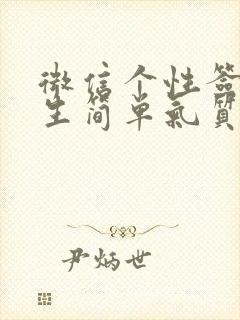 微信个性签
生简单气质
尹炳世